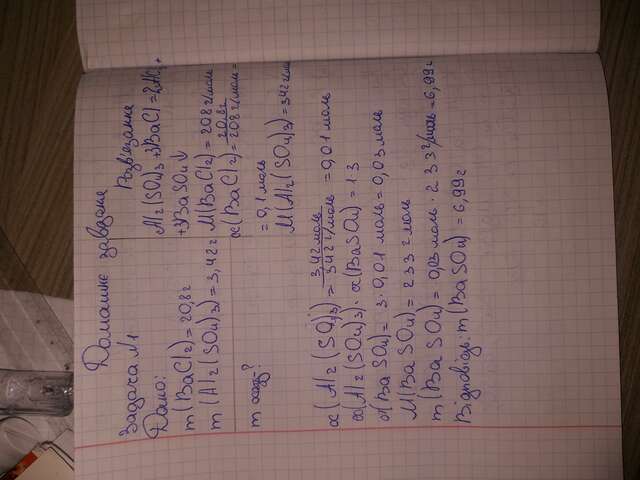 Домашнє завдання
Задача №1
Дано:
m(BaCl₂)=20,8г
m(Al₂(SO₄)₃)=3,42г
m осаду-?
Розв'язання
Al₂(SO₄)₃+3BaCl₂=2AlCl₃+
+3BaSO₄↓
M(BaCl₂)=208г/моль
α(BaCl₂)=20,8г/208г/моль=
=0,1моль
M(Al₂(SO₄)₃)=342г/моль
α(Al₂(SO₄)₃)=3,42г моль/342г/моль=0,01моль
α(Al₂(SO₄)₃)·α(BaSO₄)=1 3
α(BaSO₄)=3·0,01моль=0,03моль
M(BaSO₄)=233г моль
m(BaSO₄)=0,03моль·233г/моль=6,99г
Відповідь:m(BaSO₄)=6,99г